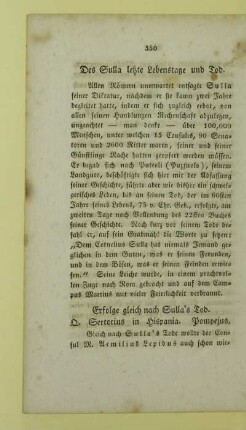 350
Des Sulla letzte Lebenstage und Tod.
Allen Römern unerwartet entsagte Sulla
seiner Diktatur, nachdem er sie kaum zwei Jahre
begleitet hatte, indem er sich zugleich erbot, von
allen seinen Handlungen Rechenschaft abzulegen,
ungeachtet — man denke — über 100,000
Menschen, unter welchen 15 Consules, 90 Sena-
toren und 2600 Ritter waren, seiner und seiner
Günstlinge Rache hatten geopfert werden müssen.
Er begab sich nach Puteoli (Puzzuolo), seinem
Landgute, beschäftigte sich hier mit der Abfassung
seiner Geschichte, führte aber ein höchst schwel-
gerisches Leben, bis an seinen Tod, der im 60sten
Jahre seines Lebens, 78 v. Chr. Geb., erfolgte, am
zweiten Tage nach Vollendung des 22sten Buches
seiner Geschichte. Noch kurz vor seinem Tode be-
fahl er, auf sein Grabmahl die Worte zu setzen:
„Dem Cornelius Sulla hat niemals Jemand ge-
glichen in dem Guten, was er seinen Freunden,
und in dem Bösen, was er seinen Feinden erwie-
sen.“ Seine Leiche wurde, in einem prachtvol-
len Zuge nach Rom gebracht und auf dem Cam-
pus Martius mit vieler Feierlichkeit verbrannt.
Erfolge gleich nach Sulla's Tod.
Q. Sertorius in Hispania. Pompejus.
Gleich nach Sulla's Tode wollte der Con-
sul M. Aemilius Lepidus auch schon wie-